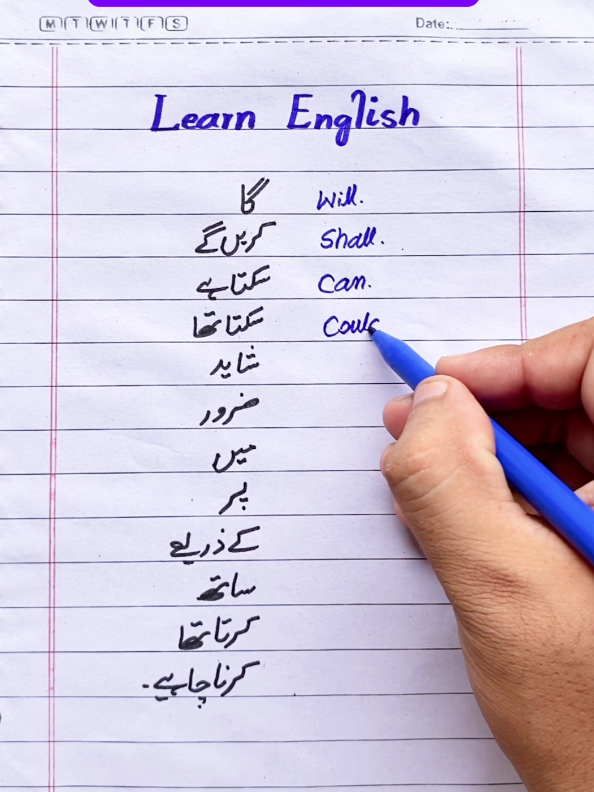 M T W T F S
Date:
Learn English
گا Will.
کریں گے Shall.
سکتا ہے Can.
سکتا تھا Coul
شاید
ضرور
میں
پر
کے ذریعے
ساتھ
کرتا تھا
کرنا چاہیے۔